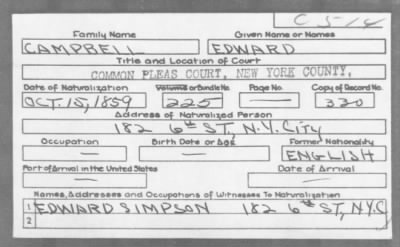 C 514
Family Name Given Name or Names
CAMPBELL EDWARD
Title and Location of Court
COMMON PLEAS COURT, NEW YORK COUNTY,
Date of Naturalization Volume or Bundle No. Page No. Copy of Record No.
OCT. 15, 1859 225 — 330
Address of Naturalized Person
182 6th ST, N.Y. City
Occupation Birth Date or Age Former Nationality
— — ENGLISH
Port of Arrival in the United States Date of Arrival
— —
Names, Addresses and Occupations of Witnesses To Naturalization
1 EDWARD SIMPSON 182 6th ST, N.Y.C
2